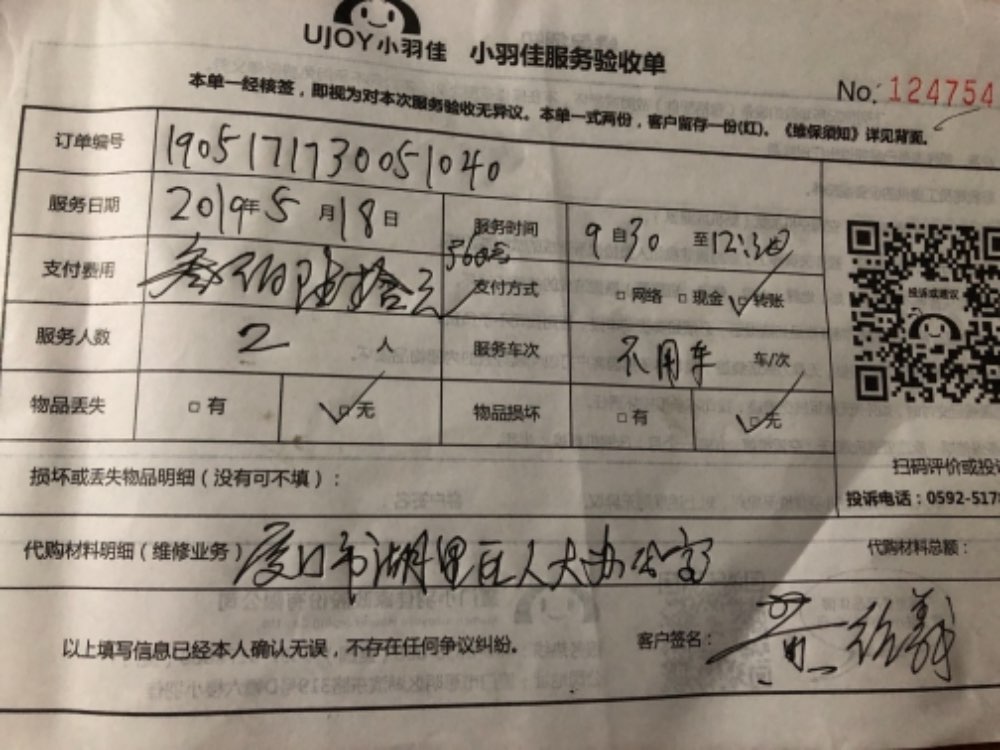 UJOY小羽佳 小羽佳服务验收单
No: 124754
本单一经核签，即视为对本次服务验收无异议。本单一式两份，客户留存一份(红)。《维保须知》详见背面。
订单编号 190517173005​1040
服务日期 2019年5月18日 服务时间 9自30至12:30
支付费用 叁佰陆拾元 360元 支付方式 □网络 □现金 □转账
服务人数 2人 服务车次 不用车 车/次
物品丢失 □有 □无 物品损坏 □有 □无
投诉或建议
损坏或丢失物品明细（没有可不填）：
扫码评价或投诉
投诉电话：0592-5178
代购材料明细（维修业务） 厦门市湖里区人大办公室 代购材料总额：
以上填写信息已经本人确认无误，不存在任何争议纠纷。 客户签名：